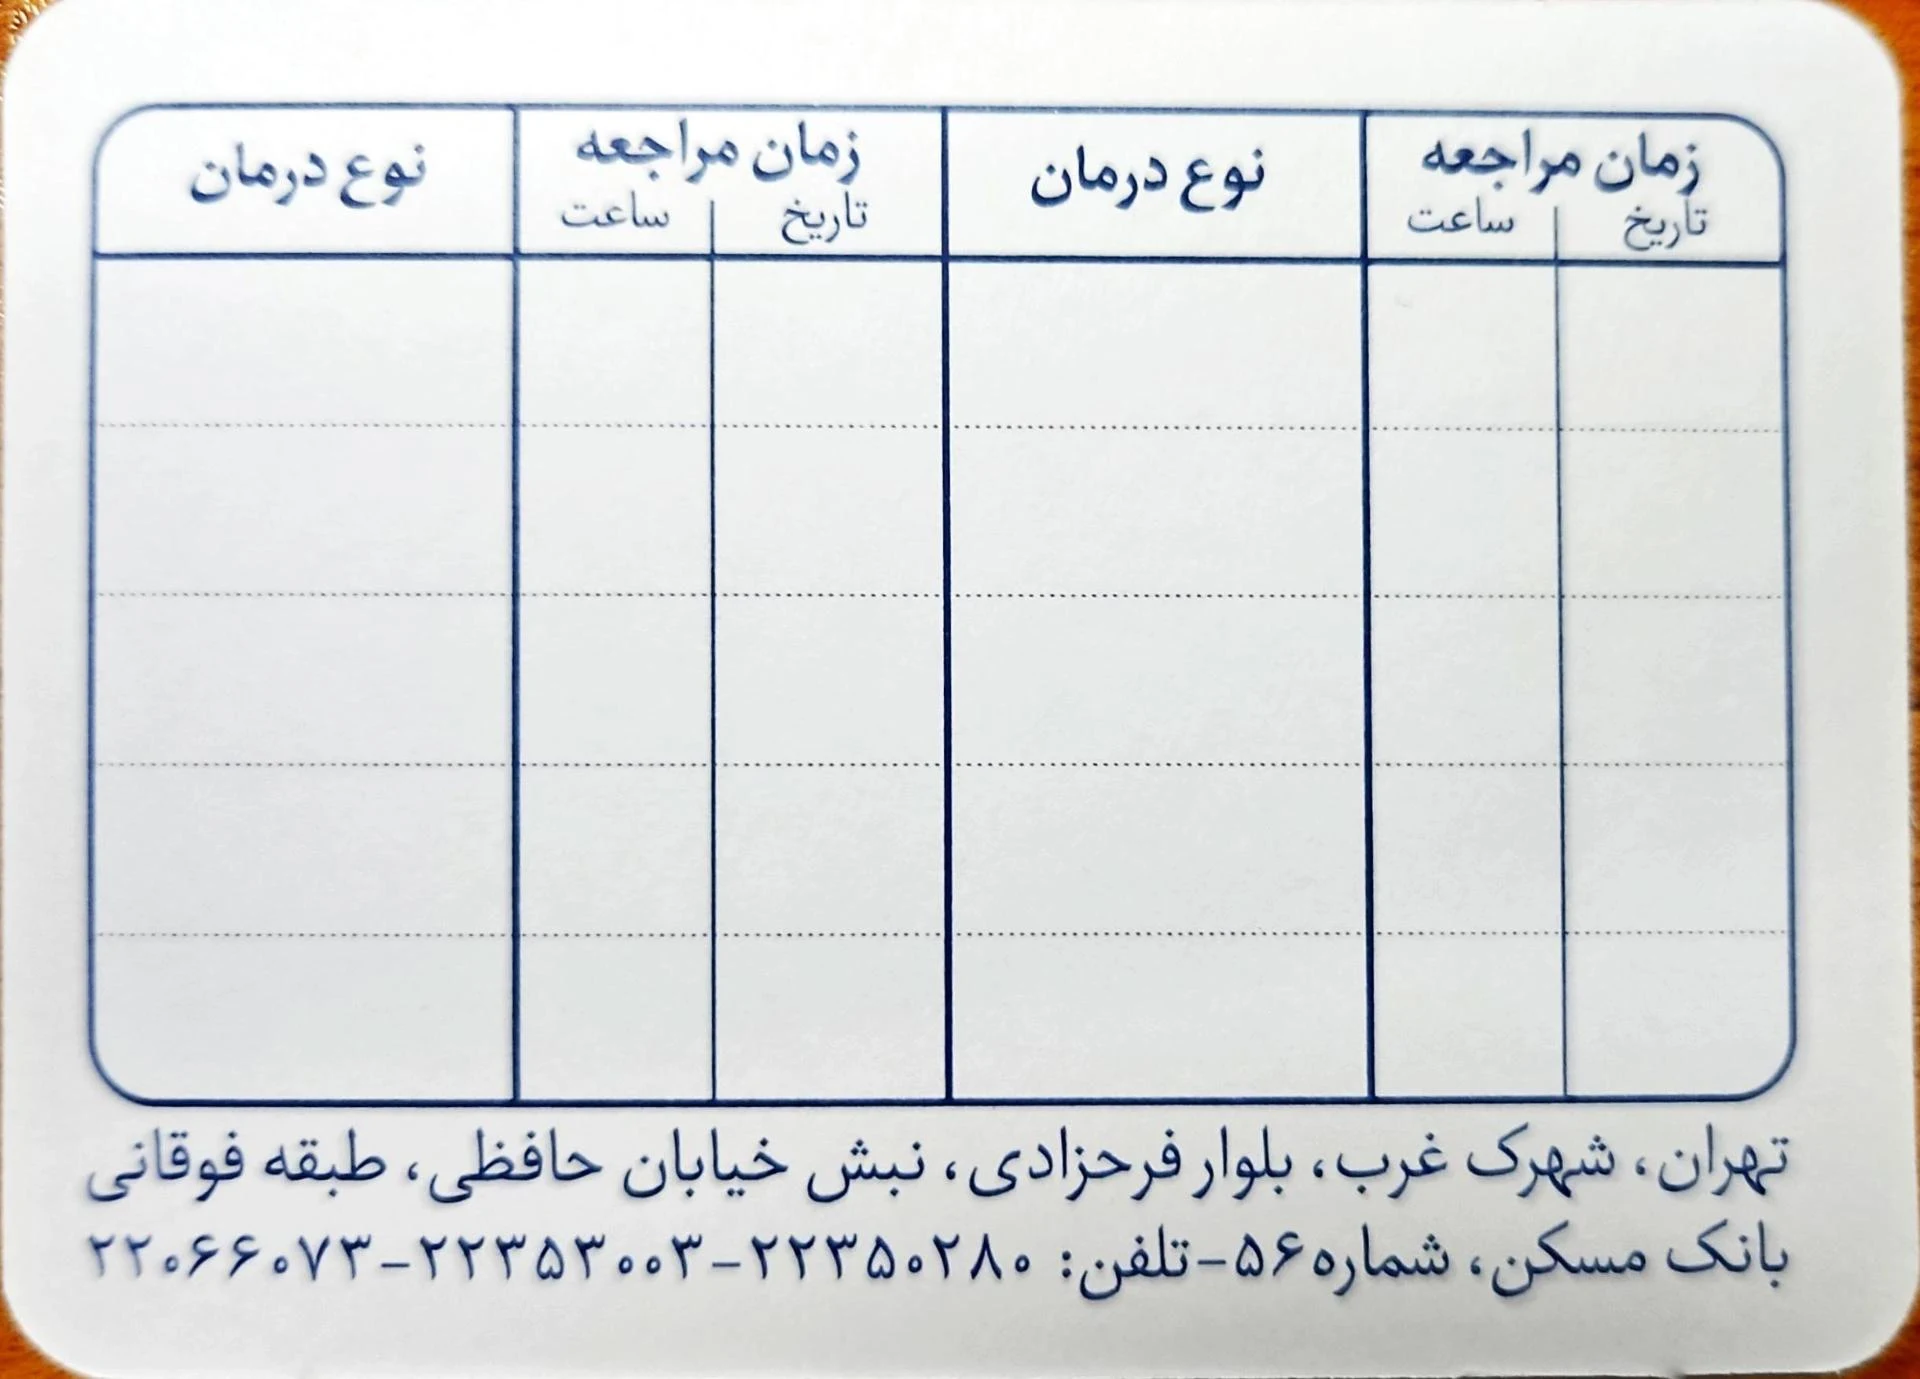 زمان مراجعه نوع درمان زمان مراجعه نوع درمان
تاریخ ساعت تاریخ ساعت
تهران، شهرک غرب، بلوار فرحزادی، نبش خیابان حافظی، طبقه فوقانی
بانک مسکن، شماره ۵۶-تلفن: ۲۲۳۵۰۲۸۰-۲۲۳۵۳۰۰۳-۲۲۰۶۶۰۷۳